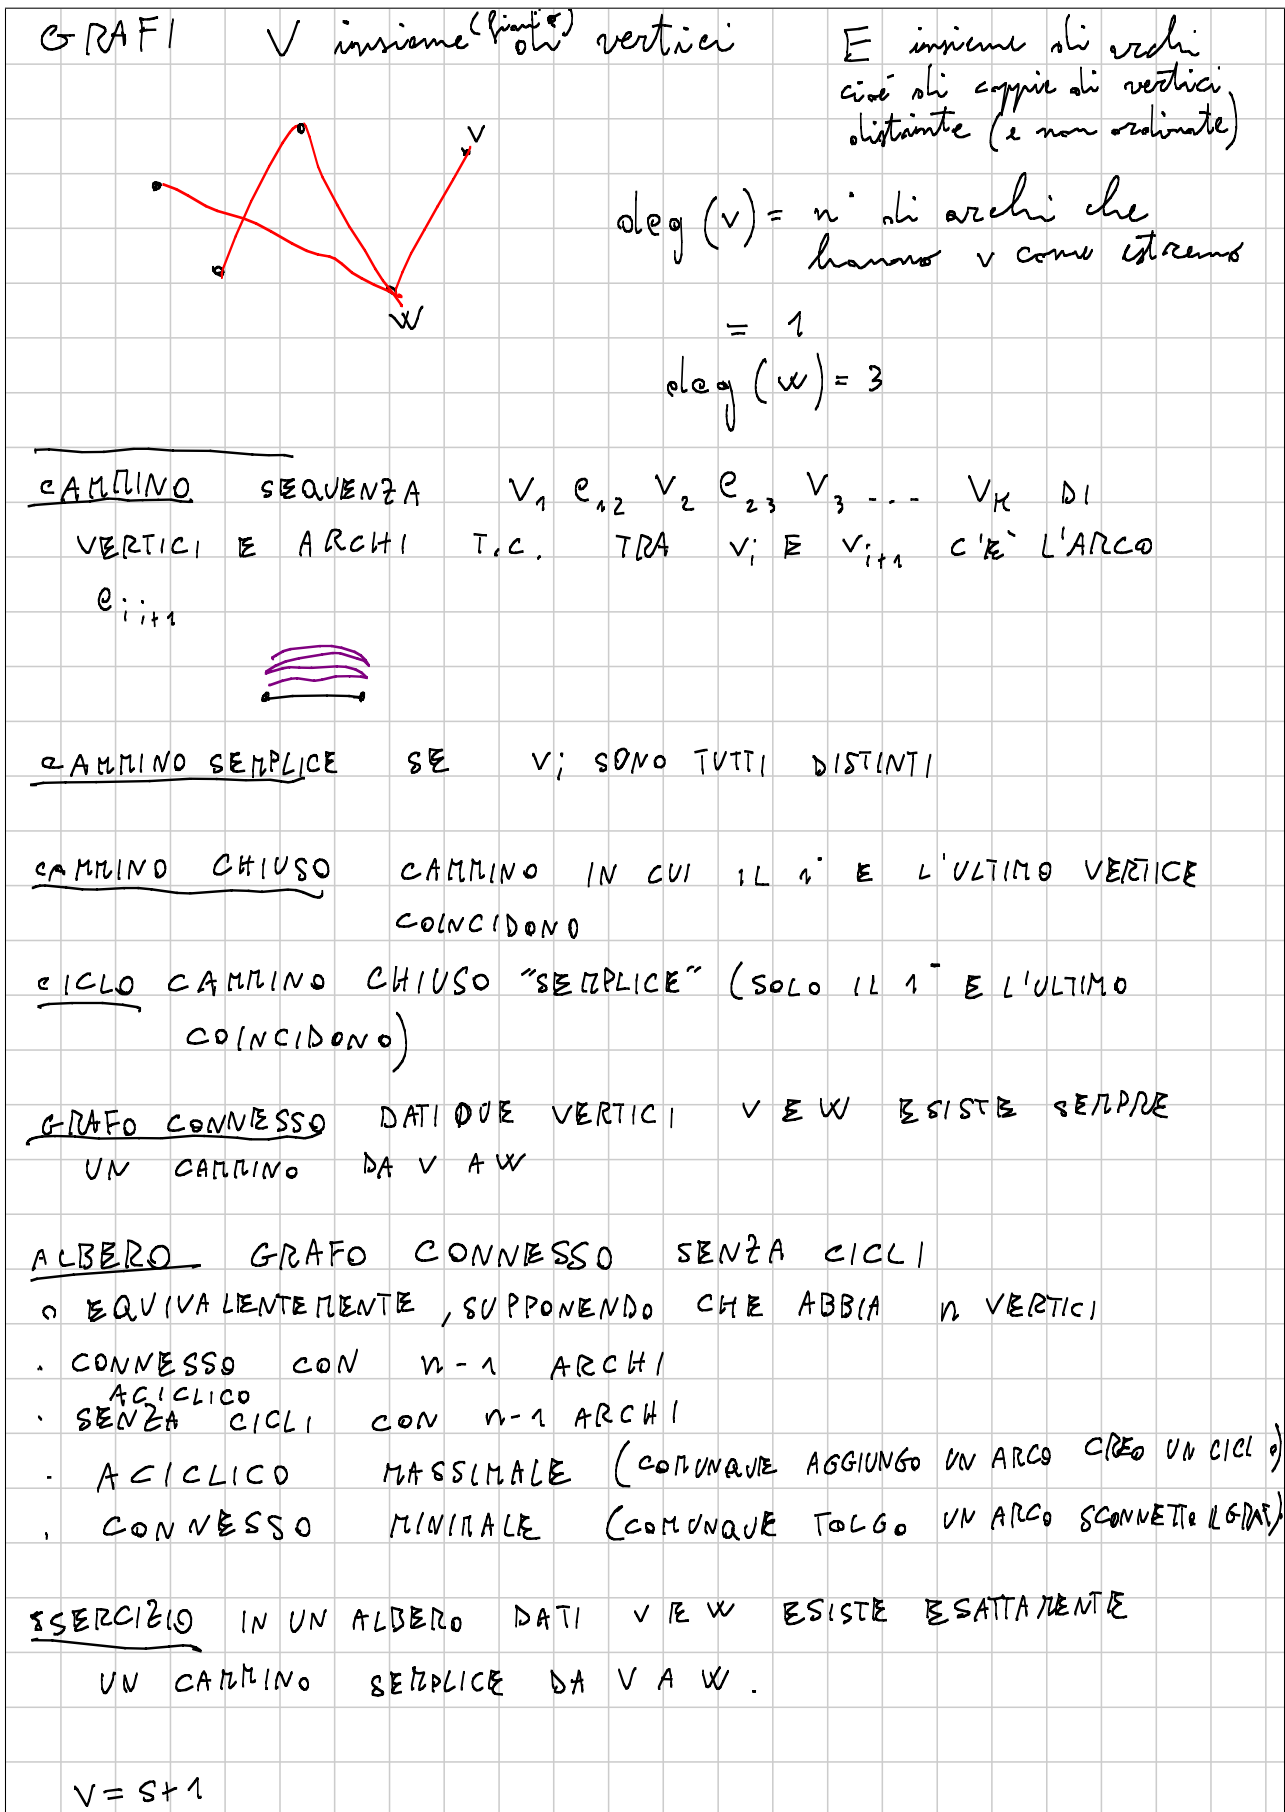 GRAFI V insieme (finito) di vertici
E insieme di archi
cioè di coppie di vertici
distinte (e non ordinate)
V
W
deg (v) = n° di archi che
hanno v come estremo
= 1
deg (w) = 3
CAMMINO SEQUENZA V₁ e₁₂ V₂ e₂₃ V₃ .... Vₖ DI
VERTICI E ARCHI T.C. TRA Vᵢ E Vᵢ₊₁ C'E' L'ARCO
eᵢ ᵢ₊₁
CAMMINO SEMPLICE SE Vᵢ SONO TUTTI DISTINTI
CAMMINO CHIUSO CAMMINO IN CUI IL 1° E L'ULTIMO VERTICE
COINCIDONO
CICLO CAMMINO CHIUSO "SEMPLICE" (SOLO IL 1° E L'ULTIMO
COINCIDONO)
GRAFO CONNESSO DATI DUE VERTICI V E W ESISTE SEMPRE
UN CAMMINO DA V A W
ALBERO GRAFO CONNESSO SENZA CICLI
o EQUIVALENTEMENTE, SUPPONENDO CHE ABBIA n VERTICI
. CONNESSO CON n-1 ARCHI
ACICLICO
. SENZA CICLI CON n-1 ARCHI
. ACICLICO MASSIMALE (COMUNQUE AGGIUNGO UN ARCO CREO UN CICLO)
. CONNESSO MINIMALE (COMUNQUE TOLGO UN ARCO SCONNETTO IL GRAF)
ESERCIZIO IN UN ALBERO DATI V E W ESISTE ESATTAMENTE
UN CAMMINO SEMPLICE DA V A W.
V = S+1